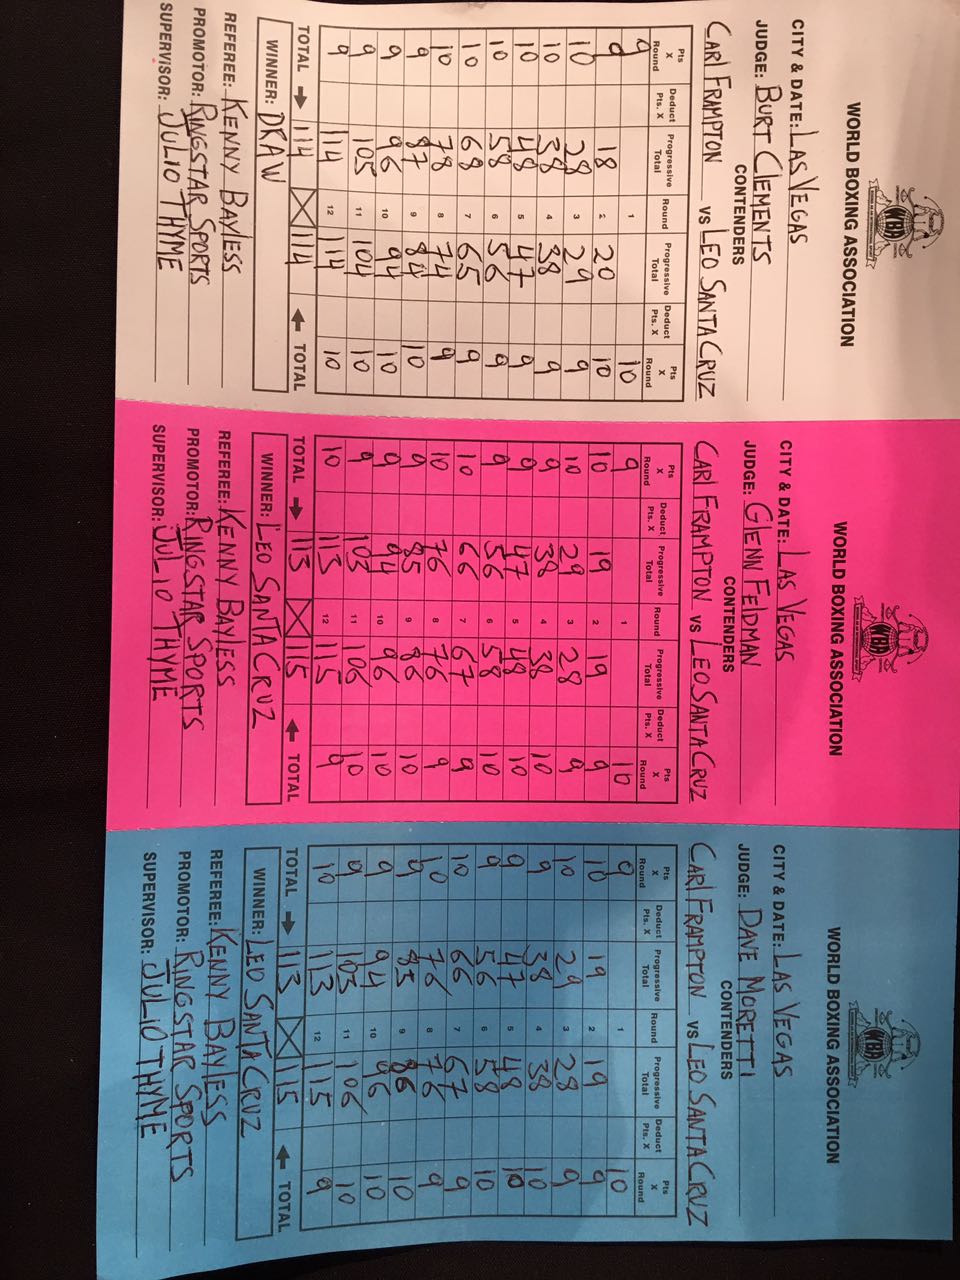 WBA
WORLD BOXING ASSOCIATION
CITY & DATE: LAS VEGAS
JUDGE: BURT CLEMENTS
CONTENDERS
CARL FRAMPTON VS LEO SANTA CRUZ
Pts X Round Deduct Pts. X Progressive Total Round Progressive Total Deduct Pts. X Pts X Round
9 1 10
9 18 2 20 10
10 28 3 29 9
10 38 4 38 9
10 48 5 47 9
10 58 6 56 9
10 68 7 65 9
10 78 8 74 9
9 87 9 84 10
9 96 10 94 10
9 105 11 104 10
9 114 12 114 10
TOTAL → 114 114 ← TOTAL
WINNER: DRAW
REFEREE: KENNY BAYLESS
PROMOTOR: RINGSTAR SPORTS
SUPERVISOR: JULIO THYME
WBA
WORLD BOXING ASSOCIATION
CITY & DATE: LAS VEGAS
JUDGE: GLENN FELDMAN
CONTENDERS
CARL FRAMPTON VS LEO SANTA CRUZ
Pts X Round Deduct Pts. X Progressive Total Round Progressive Total Deduct Pts. X Pts X Round
9 1 10
10 19 2 19 9
10 29 3 28 9
9 38 4 38 10
9 47 5 48 10
9 56 6 58 10
10 66 7 67 9
10 76 8 76 9
9 85 9 86 10
9 94 10 96 10
9 103 11 106 10
10 113 12 115 9
TOTAL → 113 115 ← TOTAL
WINNER: LEO SANTA CRUZ
REFEREE: KENNY BAYLESS
PROMOTOR: RINGSTAR SPORTS
SUPERVISOR: JULIO THYME
WBA
WORLD BOXING ASSOCIATION
CITY & DATE: LAS VEGAS
JUDGE: DAVE MORETTI
CONTENDERS
CARL FRAMPTON VS LEO SANTA CRUZ
Pts X Round Deduct Pts. X Progressive Total Round Progressive Total Deduct Pts. X Pts X Round
9 1 10
10 19 2 19 9
10 29 3 28 9
9 38 4 38 10
9 47 5 48 10
9 56 6 58 10
10 66 7 67 9
10 76 8 76 9
9 85 9 86 10
9 94 10 96 10
9 103 11 106 10
10 113 12 115 9
TOTAL → 113 115 ← TOTAL
WINNER: LEO SANTA CRUZ
REFEREE: KENNY BAYLESS
PROMOTOR: RINGSTAR SPORTS
SUPERVISOR: JULIO THYME